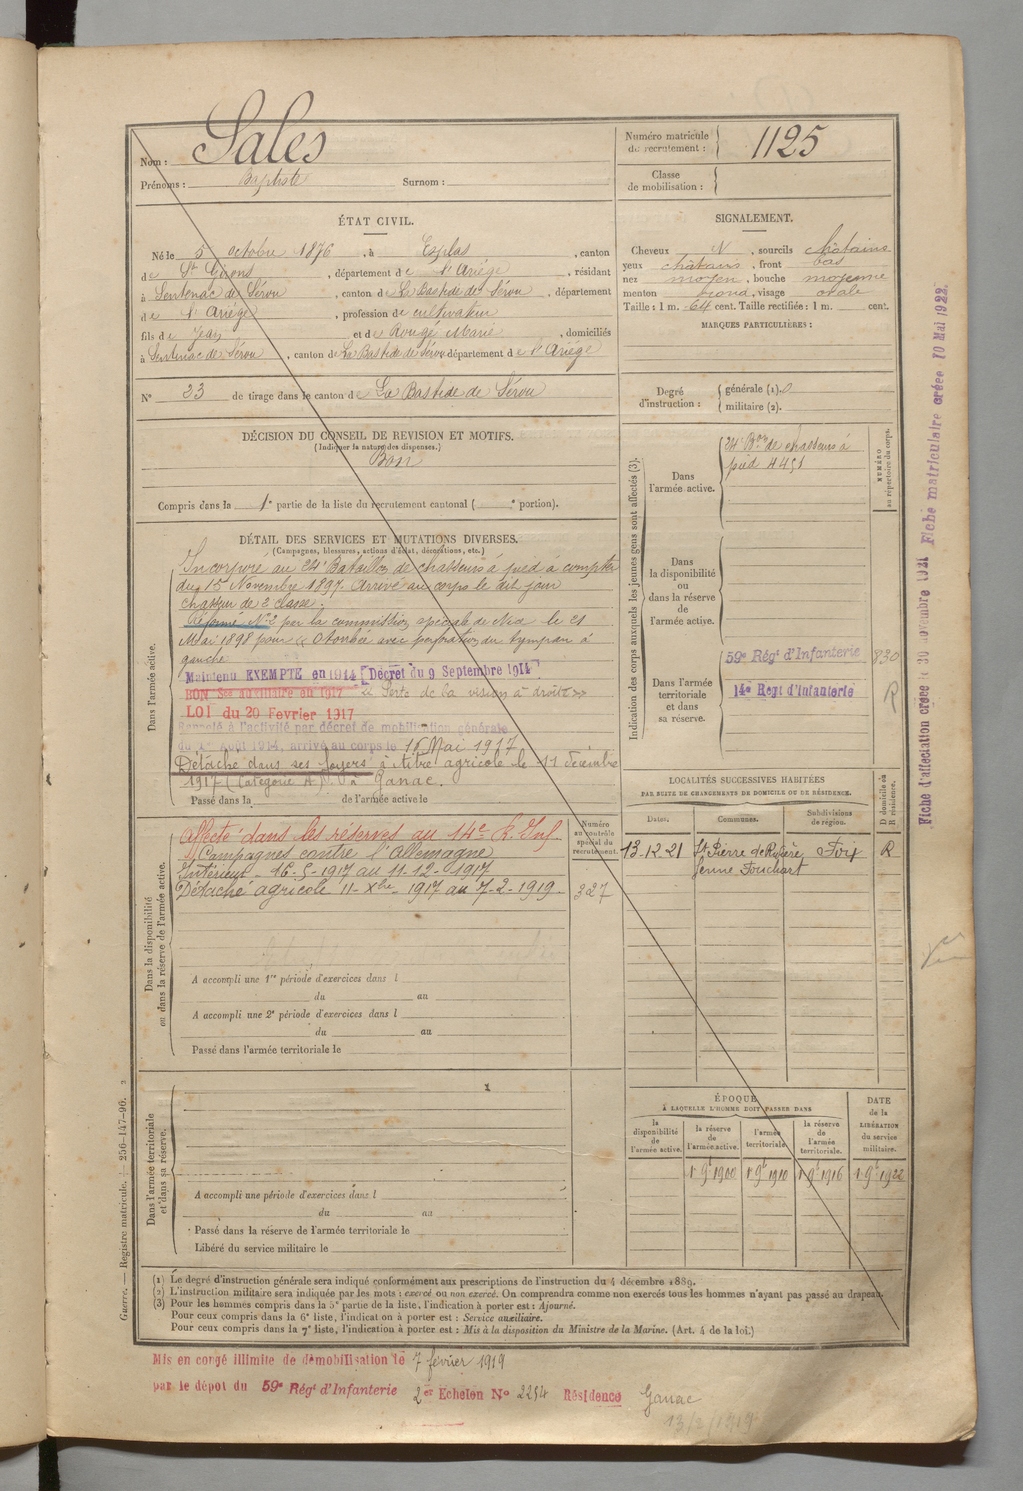 Nom : Sales
Prénoms : Baptiste Surnom :
Numéro matricule du recrutement : 1125
Classe de mobilisation :
ÉTAT CIVIL.
Né le 5 octobre 1876, à Esplas, canton
de St Girons, département de l'Ariège, résidant
à Sentenac de Sérou, canton de La Bastide de Sérou, département
de l'Ariège, profession de cultivateur
fils de Jean et de Rougé Marie, domiciliés
à Sentenac de Sérou, canton de La Bastide de Sérou département de l'Ariège
N° 33 de tirage dans le canton de La Bastide de Sérou
SIGNALEMENT.
Cheveux N, sourcils châtains
yeux châtains, front bas
nez moyen, bouche moyenne
menton rond, visage ovale
Taille : 1 m. 64 cent. Taille rectifiée : 1 m. cent.
MARQUES PARTICULIÈRES :
Degré d'instruction : générale (1). 0
militaire (2).
DÉCISION DU CONSEIL DE REVISION ET MOTIFS.
(Indiquer la nature des dispenses.)
Bon
Compris dans la 1e partie de la liste du recrutement cantonal ( e portion).
DÉTAIL DES SERVICES ET MUTATIONS DIVERSES.
(Campagnes, blessures, actions d'éclat, décorations, etc.)
Dans l'armée active.
Incorporé au 24e Bataillon de chasseurs à pied à compter
du 15 Novembre 1897. Arrivé au corps le dit jour
chasseur de 2e classe.
Réformé N°2 par la commission spéciale de Nice le 21
Mai 1898 pour « Otorrhée avec perforation du tympan à
gauche
Maintenu EXEMPTE en 1914 [Décret du 9 Septembre 1914]
BON Sce auxiliaire en 1917 « Perte de la vision à droite »
LOI du 20 Fevrier 1917
Rappelé à l'activité par décret de mobilisation générale
du 1er Août 1914, arrivé au corps le 16 Mai 1917
Détaché dans ses foyers à titre agricole le 11 décembre
1917 (Catégorie A) à Ganac.
Passé dans la de l'armée active le
Dans la disponibilité ou dans la réserve de l'armée active.
Numéro au contrôle spécial du recrutement.
Affecté dans les réserves au 14e R. Inf
Campagnes contre l'Allemagne
Intérieur 16-5-1917 au 11-12-1917
Détaché agricole 11-Xbre 1917 au 7-2-1919.
327
A accompli une 1re période d'exercices dans l
du au
A accompli une 2e période d'exercices dans l
du au
Passé dans l'armée territoriale le
Dans l'armée territoriale et dans sa réserve.
A accompli une période d'exercices dans l
du au
Passé dans la réserve de l'armée territoriale le
Libéré du service militaire le
Indication des corps auxquels les jeunes gens sont affectés (3).
NUMÉRO au répertoire du corps.
Dans l'armée active.
24e Bon de chasseurs à
pied 4451
Dans la disponibilité ou dans la réserve de l'armée active.
Dans l'armée territoriale et dans sa réserve.
59e Régt d'Infanterie 830
14e Regt d'Infanterie R
LOCALITÉS SUCCESSIVES HABITÉES
PAR SUITE DE CHANGEMENTS DE DOMICILE OU DE RÉSIDENCE.
Dates. Communes. Subdivisions de région. D domicile ou R résidence.
13-12-21 St Pierre de Rivière Foix R
ÉPOQUE
À LAQUELLE L'HOMME DOIT PASSER DANS
la disponibilité de l'armée active.
la réserve de l'armée active.
l'armée territoriale.
la réserve de l'armée territoriale.
DATE de la LIBÉRATION du service militaire.
1. 9bre 1900 1. 9bre 1910 1. 9bre 1916 1. 9bre 1922
(1) Le degré d'instruction générale sera indiqué conformément aux prescriptions de l'instruction du 4 décembre 1889.
(2) L'instruction militaire sera indiquée par les mots : exercé ou non exercé. On comprendra comme non exercés tous les hommes n'ayant pas passé au drapeau.
(3) Pour les hommes compris dans la 5e partie de la liste, l'indication à porter est : Ajourné.
Pour ceux compris dans la 6e liste, l'indication à porter est : Service auxiliaire.
Pour ceux compris dans la 7e liste, l'indication à porter est : Mis à la disposition du Ministre de la Marine. (Art. 4 de la loi.)
Guerre. — Registre matricule. — 256-147-96. 2
Mis en congé illimité de démobilisation le 7 février 1919
par le dépot du 59e Régt d'Infanterie 2er Echelon N° 2254 Résidence Ganac
13/2/1919
Fiche d'affectation créée le 30 novembre 1921 Fiche matriculaire créée 10 Mai 1922.